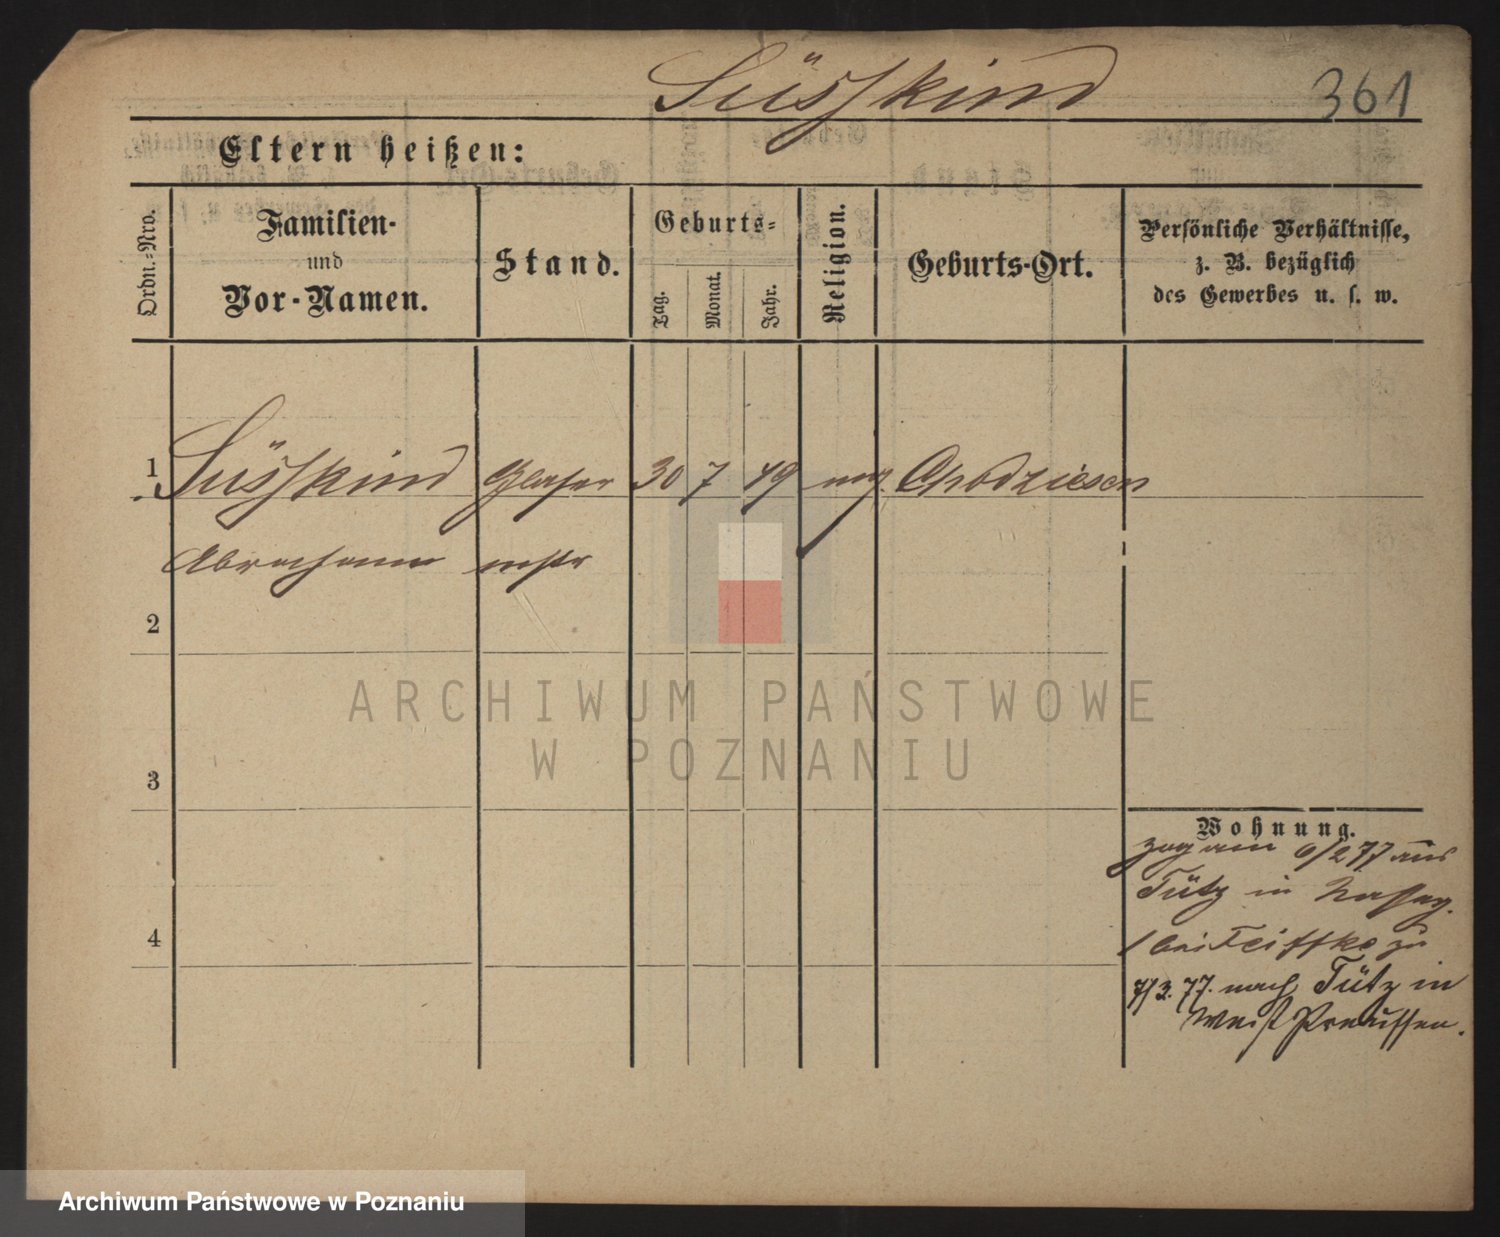 Süsskind
361
Eltern heißen:
Ordn.-Nro.
Familien-
und
Vor-Namen.
Stand.
Geburts-
Tag.
Monat.
Jahr.
Religion.
Geburts-Ort.
Persönliche Verhältnisse,
z. B. bezüglich
des Gewerbes u. s. w.
1 Süsskind Glaser 30 7 49 Chodziesen
Abraham mstr
2
3
4
Wohnung.
zog am 6/2 77 aus
Tütz in
bei zu
7/3. 77. nach Tütz in
West Preussen.
ARCHIWUM PAŃSTWOWE
W POZNANIU
Archiwum Państwowe w Poznaniu